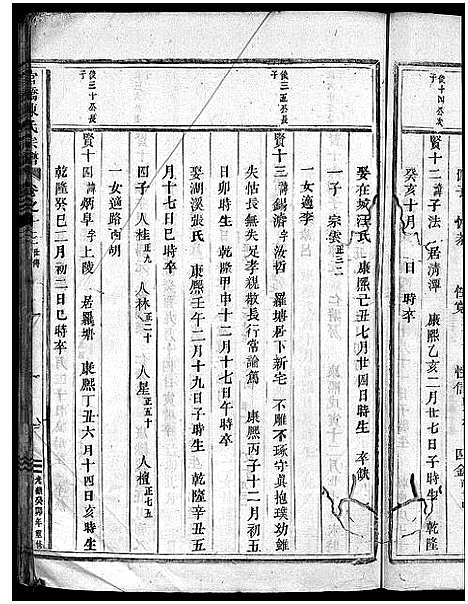 俊十四公次子
賢十二諱子法 居清潭 康熙乙亥二月廿七日子時生 乾隆
癸亥十月 日 時卒
娶在城汪氏 康熙己丑七月廿四日時生 卒缺
一子 宗雲正三二
一女適李
俊三十五公長子
賢十三諱錫濤字汝哲 羅塘居下新宅 不雕不琢守眞抱璞幼雖
失怙長無矣足孝親敬長行常論篤 康熙丙子十二月初
日卯時生 乾隆甲申十二月十七日午時卒
娶湖溪張氏 康熙壬午二月十九日子時生 乾隆辛丑五
月十七日巳時卒
四子 人桂正九 人林正二十 人星正五十 人檀正七五
一女適路西胡
俊三十公長子
賢十四諱炳阜字上陵 居羅塘 康熙丁丑六月十四日亥時生
乾隆癸巳二月初二日巳時卒
官橋陳氏宗譜
光緒癸卯年重修